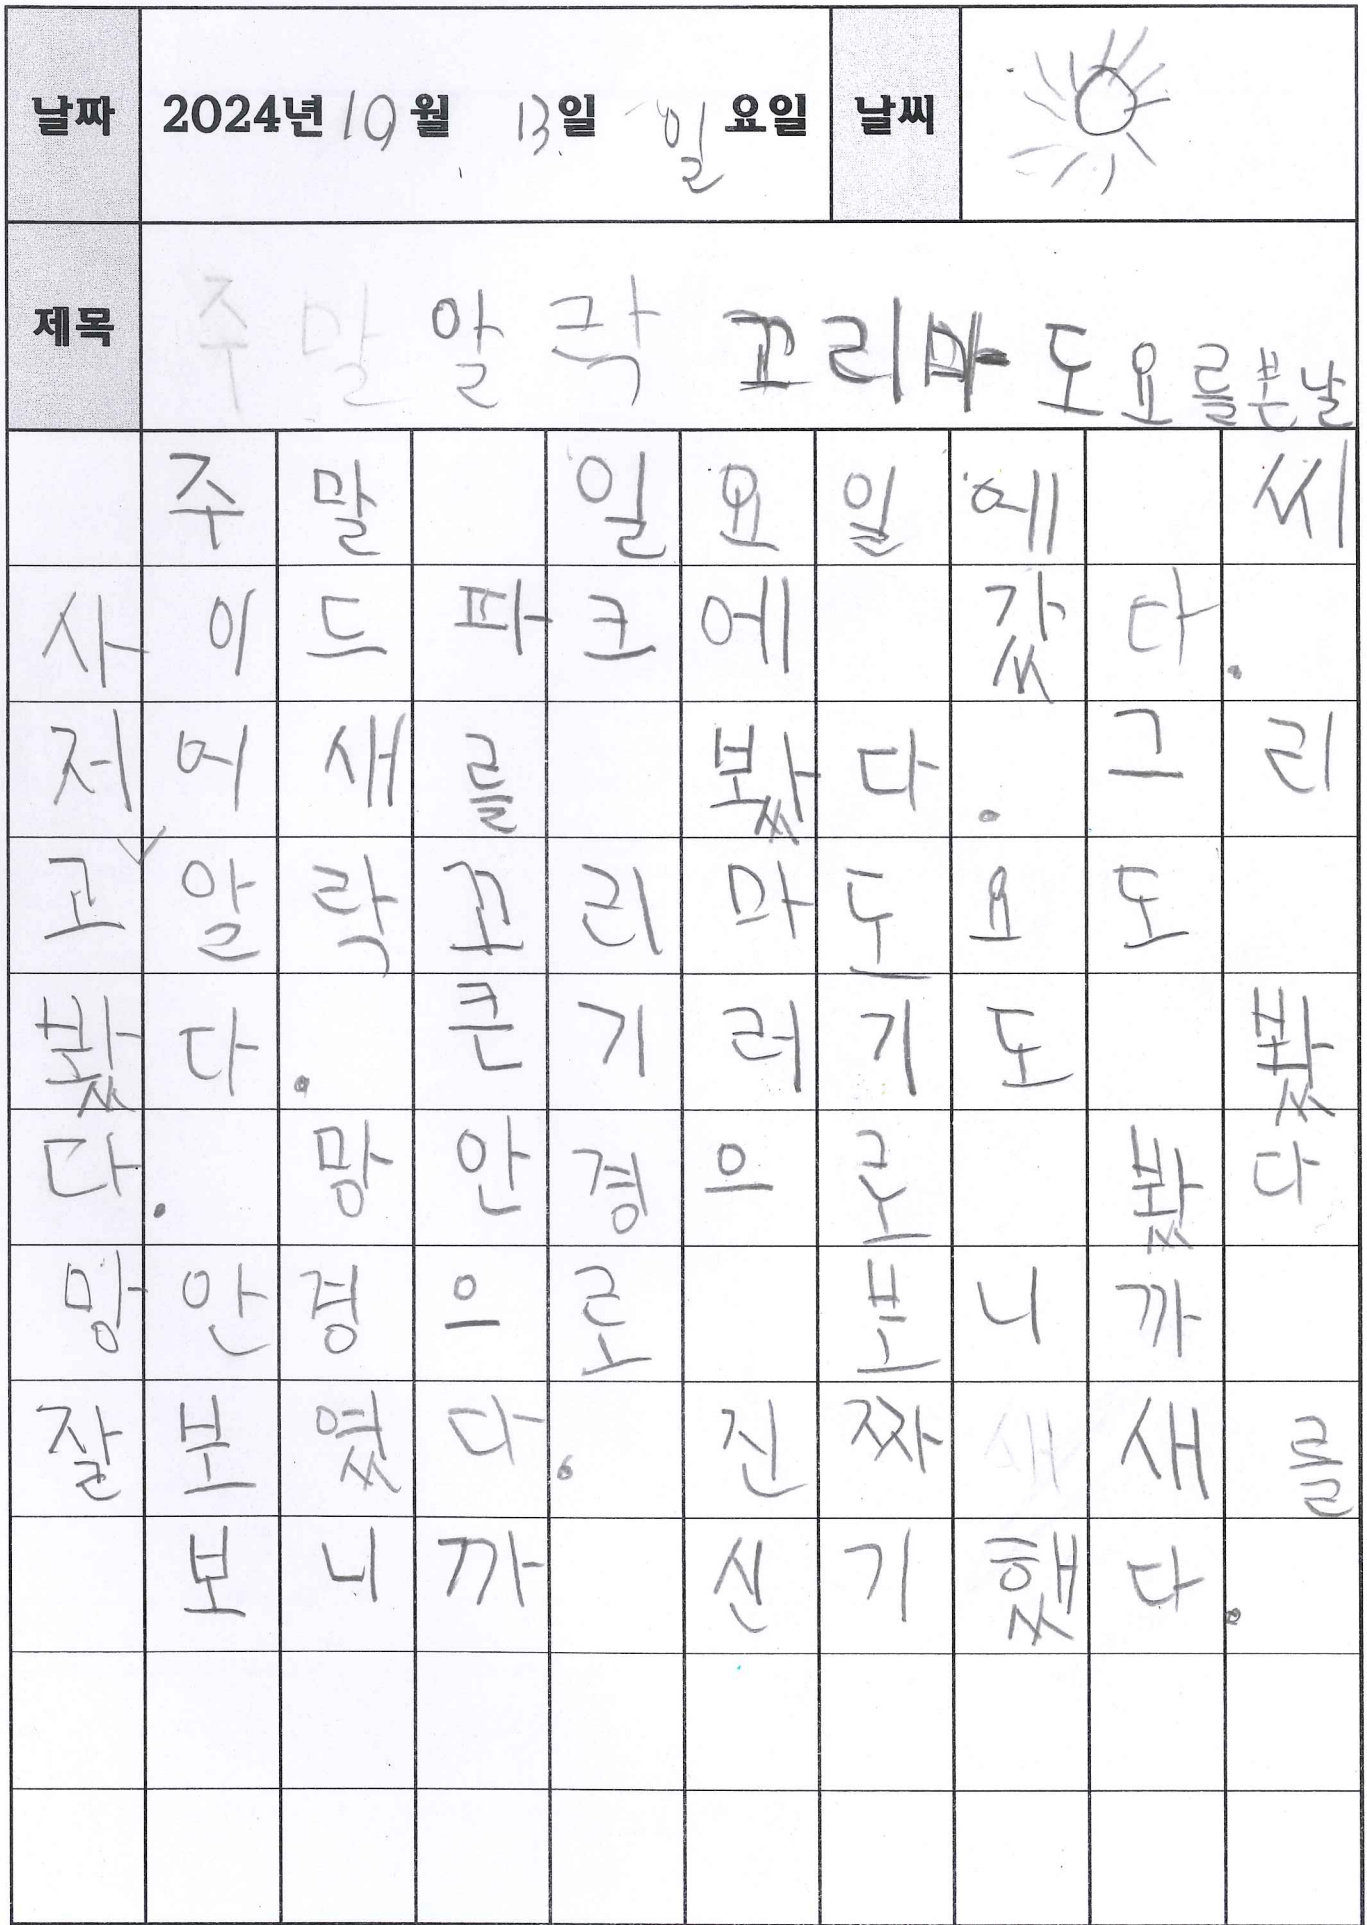 날짜 2024년 10월 13일 일요일 날씨
제목 주말 알락 꼬리마도요를본날
주말 일요일에 씨
사이드파크에 갔다.
저어새를 봤다. 그리
고 알락꼬리마도요도
봤다. 큰기러기도 봤
다. 망안경으로 봤다
망안경으로 보니까
잘보였다. 진짜 새를
보니까 신기했다.